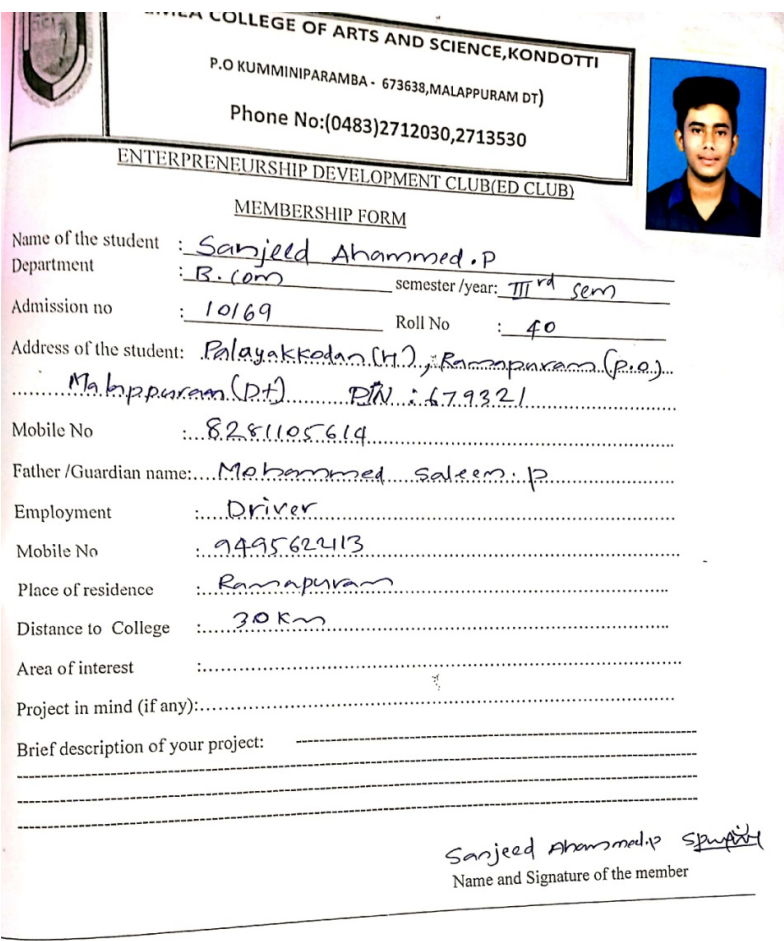 COLLEGE OF ARTS AND SCIENCE,KONDOTTI
P.O KUMMINIPARAMBA - 673638,MALAPPURAM DT)
Phone No:(0483)2712030,2713530
ENTERPRENEURSHIP DEVELOPMENT CLUB(ED CLUB)
MEMBERSHIP FORM
Name of the student : Sanjeed Ahammed.P
Department : B.Com semester /year: IIIrd sem
Admission no : 10169 Roll No : 40
Address of the student: Palayakkodan (H), Ramapuram (P.O)
Malappuram (Dt) PIN : 679321
Mobile No : 8281105614
Father /Guardian name: Mohammed Saleem. P
Employment : Driver
Mobile No : 9495622113
Place of residence : Ramapuram
Distance to College : 30 Km
Area of interest :
Project in mind (if any):
Brief description of your project:
Sanjeed Ahammed.P
Name and Signature of the member